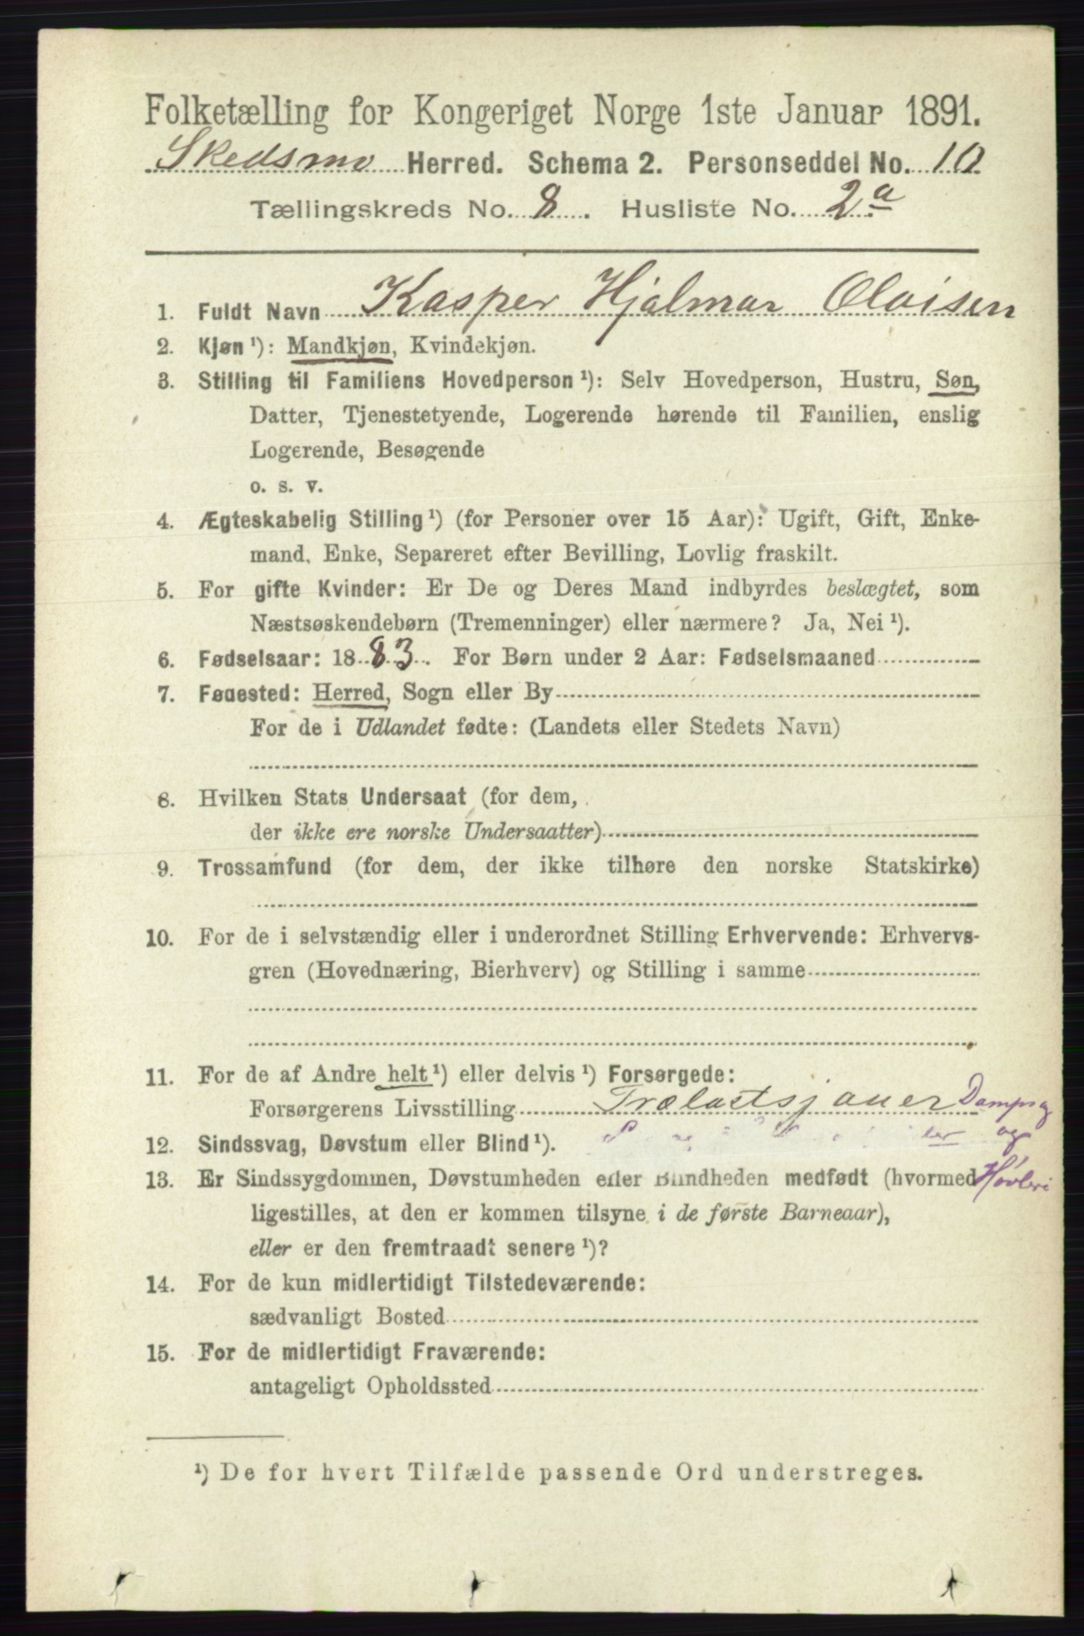 Folketælling for Kongeriget Norge 1ste Januar 1891.
Skedsmo Herred. Schema 2. Personseddel No. 10
Tællingskreds No. 8. Husliste No. 2a
1. Fuldt Navn Kasper Hjalmar Olaisen
2. Kjøn¹): Mandkjøn, Kvindekjøn.
3. Stilling til Familiens Hovedperson¹): Selv Hovedperson, Hustru, Søn,
Datter, Tjenestetyende, Logerende hørende til Familien, enslig
Logerende, Besøgende
o. s. v.
4. Ægteskabelig Stilling¹) (for Personer over 15 Aar): Ugift, Gift, Enke-
mand, Enke, Separeret efter Bevilling, Lovlig fraskilt.
5. For gifte Kvinder: Er De og Deres Mand indbyrdes beslægtet, som
Næstsøskendebørn (Tremenninger) eller nærmere? Ja, Nei¹).
6. Fødselsaar: 1883. For Børn under 2 Aar: Fødselsmaaned
7. Fødested: Herred, Sogn eller By
For de i Udlandet fødte: (Landets eller Stedets Navn)
8. Hvilken Stats Undersaat (for dem,
der ikke ere norske Undersaatter)
9. Trossamfund (for dem, der ikke tilhøre den norske Statskirke)
10. For de i selvstændig eller i underordnet Stilling Erhvervende: Erhvervs-
gren (Hovednæring, Bierhverv) og Stilling i samme
11. For de af Andre helt¹) eller delvis¹) Forsørgede:
Forsørgerens Livsstilling Trælastsjauer Dampsag
12. Sindssvag, Døvstum eller Blind¹). og
13. Er Sindssygdommen, Døvstumheden eller Blindheden medfødt (hvormed Høvleri
ligestilles, at den er kommen tilsyne i de første Barneaar),
eller er den fremtraadt senere¹)?
14. For de kun midlertidigt Tilstedeværende:
sædvanligt Bosted
15. For de midlertidigt Fraværende:
antageligt Opholdssted
¹) De for hvert Tilfælde passende Ord understreges.